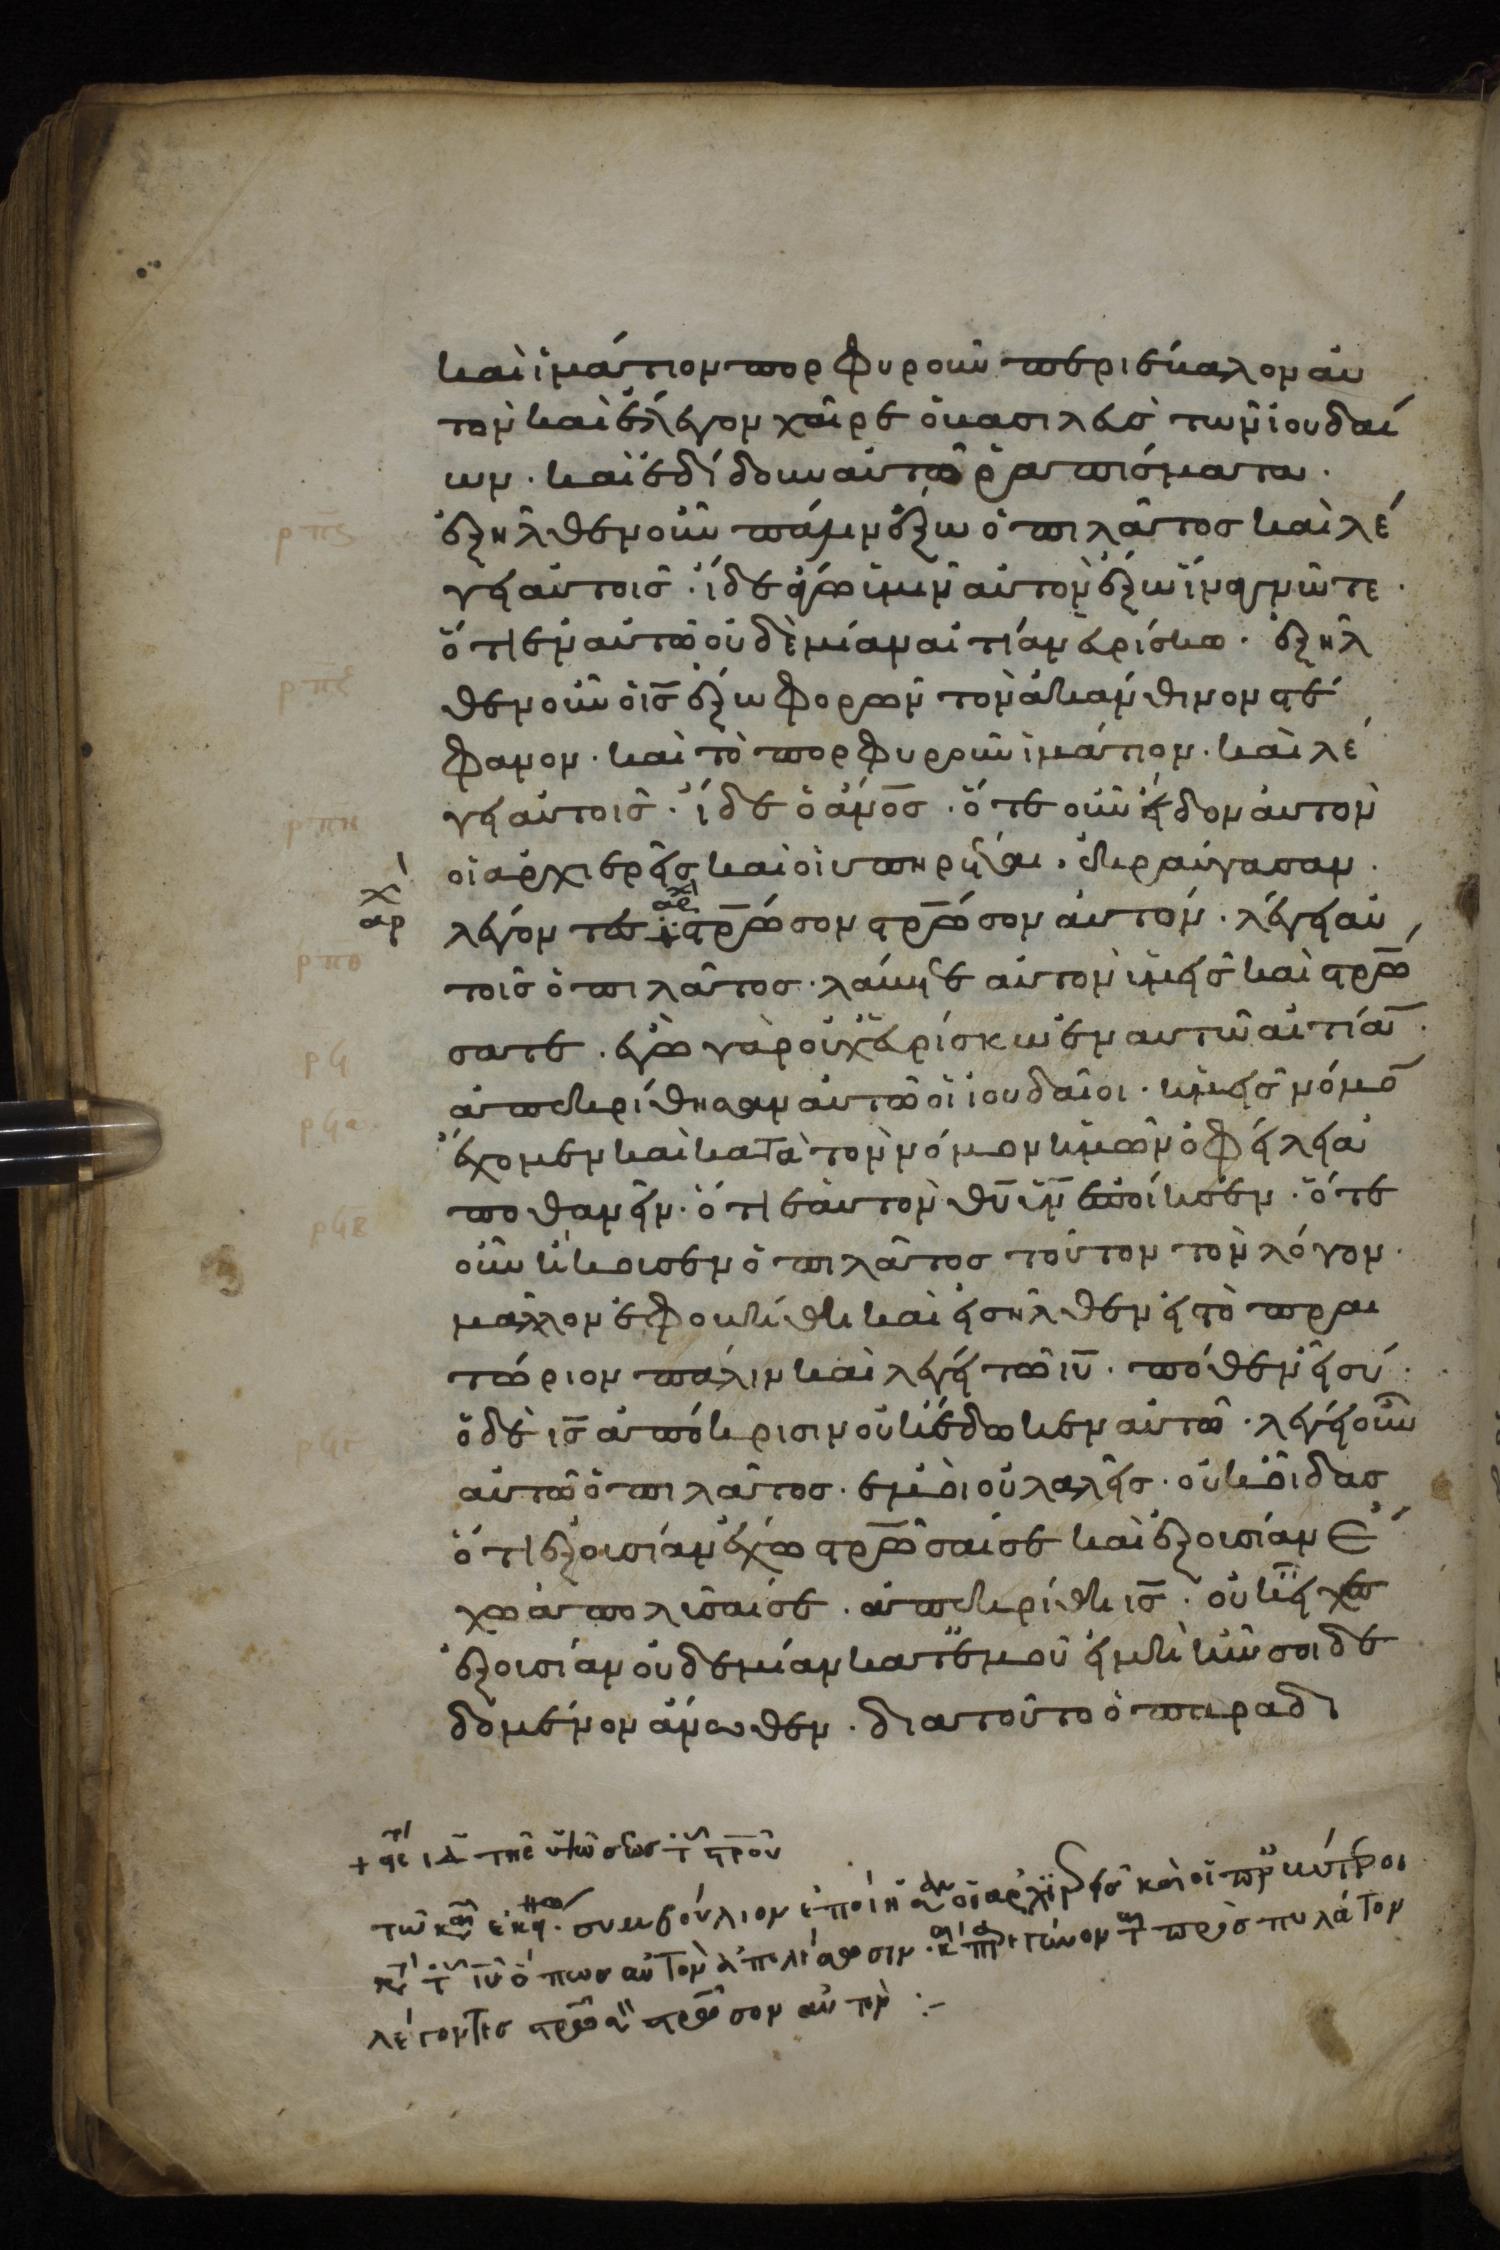 καὶ ἱμάτιον πορφυροῦν περιέβαλον αὐ
τὸν καὶ ἔλεγον χαῖρε ὁ βασιλεὺς τῶν ἰουδαί
ων · καὶ ἐδίδουν αὐτῶ ῥαπίσματα ·
ρπϛ ἐξῆλθεν οὖν πάλιν ἔξω ὁ πιλᾶτος καὶ λέ
γει αὐτοῖς · ἴδε ἄγω ὑμῖν αὐτὸν ἔξω ἵνα γνῶτε ·
ὅτι ἐν αὐτῶ οὐδὲμίαν αἰτίαν εὑρίσκω · ἐξῆλ
ρπζ θεν οὖν ὁ ις̅ ἔξω φορῶν τὸν ἀκάνθινον στέ
φανον · καὶ τὸ πορφυροῦν ἱμάτιον · καὶ λέ
ρπη γει αὐτοῖς · ἴδε ὁ ἀν̅ος · ὅτε οὖν εἶδον αὐτὸν
οἱ ἀρχιερεῖς καὶ οἱ ὑπηρέται · ἐκραύγασαν ·
αρχ λέγοντες αρχ στρ̅ωσον στρ̅ωσον αὐτόν · λέγει αὐ
ρπθ τοῖς ὁ πιλᾶτος · λάβετε αὐτὸν ὑμεῖς καὶ στρ̅ω
ρϟ σατε · ἐγὼ γὰρ οὐχ εὑρίσκω ἐν αυτῶ αἰτίαν ·
ρϟα ἀπεκρίθησαν αὐτῶ οἱ ἰουδαῖοι · ἡμεῖς νόμο̅
ἔχομεν καὶ κατὰ τὸν νόμον ἡμῶν ὀφείλει ἀ
ρϟβ ποθανεῖν · ὅτι ἑαυτὸν θυ̅ υν̅ ἐποίησεν · ὅτε
οὖν ἤκουσεν ὁ πιλᾶτος τοῦτον τὸν λόγον ·
μᾶλλον ἐφοβήθη καὶ εἰσῆλθεν εἰς τὸ πραι
τώριον πάλιν καὶ λέγει τῶ ιυ̅ · πόθεν εἶ σύ ·
ρϟγ ὁ δὲ ις̅ ἀπόκρισιν οὐκ ἔδωκεν αὐτῶ · λέγει οὖν
αὐτῶ ὁ πιλᾶτος · ἐμοὶ οὐ λαλεῖς · οὐκ οἶδας
ὅτι ἐξουσίαν ἔχω στρ̅ωσαί σε καὶ ἐξουσίαν ἔ
χω ἀπολῦσαί σε · ἀπεκρίθη ις̅ · οὐκ εἶχες
ἐξουσίαν οὐδεμίαν κατ ἐμοῦ εἰ μὴ ἦν σοι δε
δομένον ἄνωθεν · διατοῦτο ὁ παραδι
+ τῆς ὑψώσεως τοῦ στρ̅ου
τῶ καιρῶ ἐκείνω · συμβούλιον ἐποίησαν οἱ ἀρχιερεῖς καὶ οἱ πρεσβύτεροι
κατὰ τοῦ ιυ̅ ὅπως αὐτὸν ἀπολέσωσιν · πρὸς πιλάτον
λέγοντες στρωσον αὐτὸν :-